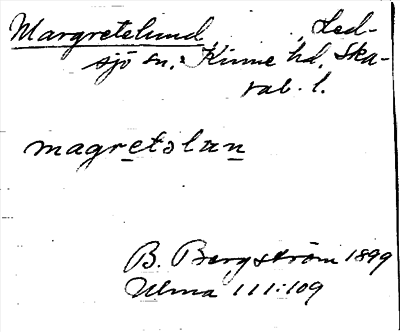 Margretelund, Led-
sjö sn., Kinne hd, Ska-
rab. l.
magretslun
B. Bergström 1899
Ulma 111:109